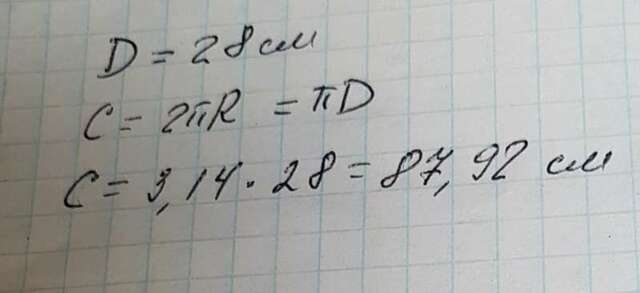 D = 28 см
C = 2πR = πD
C = 3,14 · 28 = 87,92 см